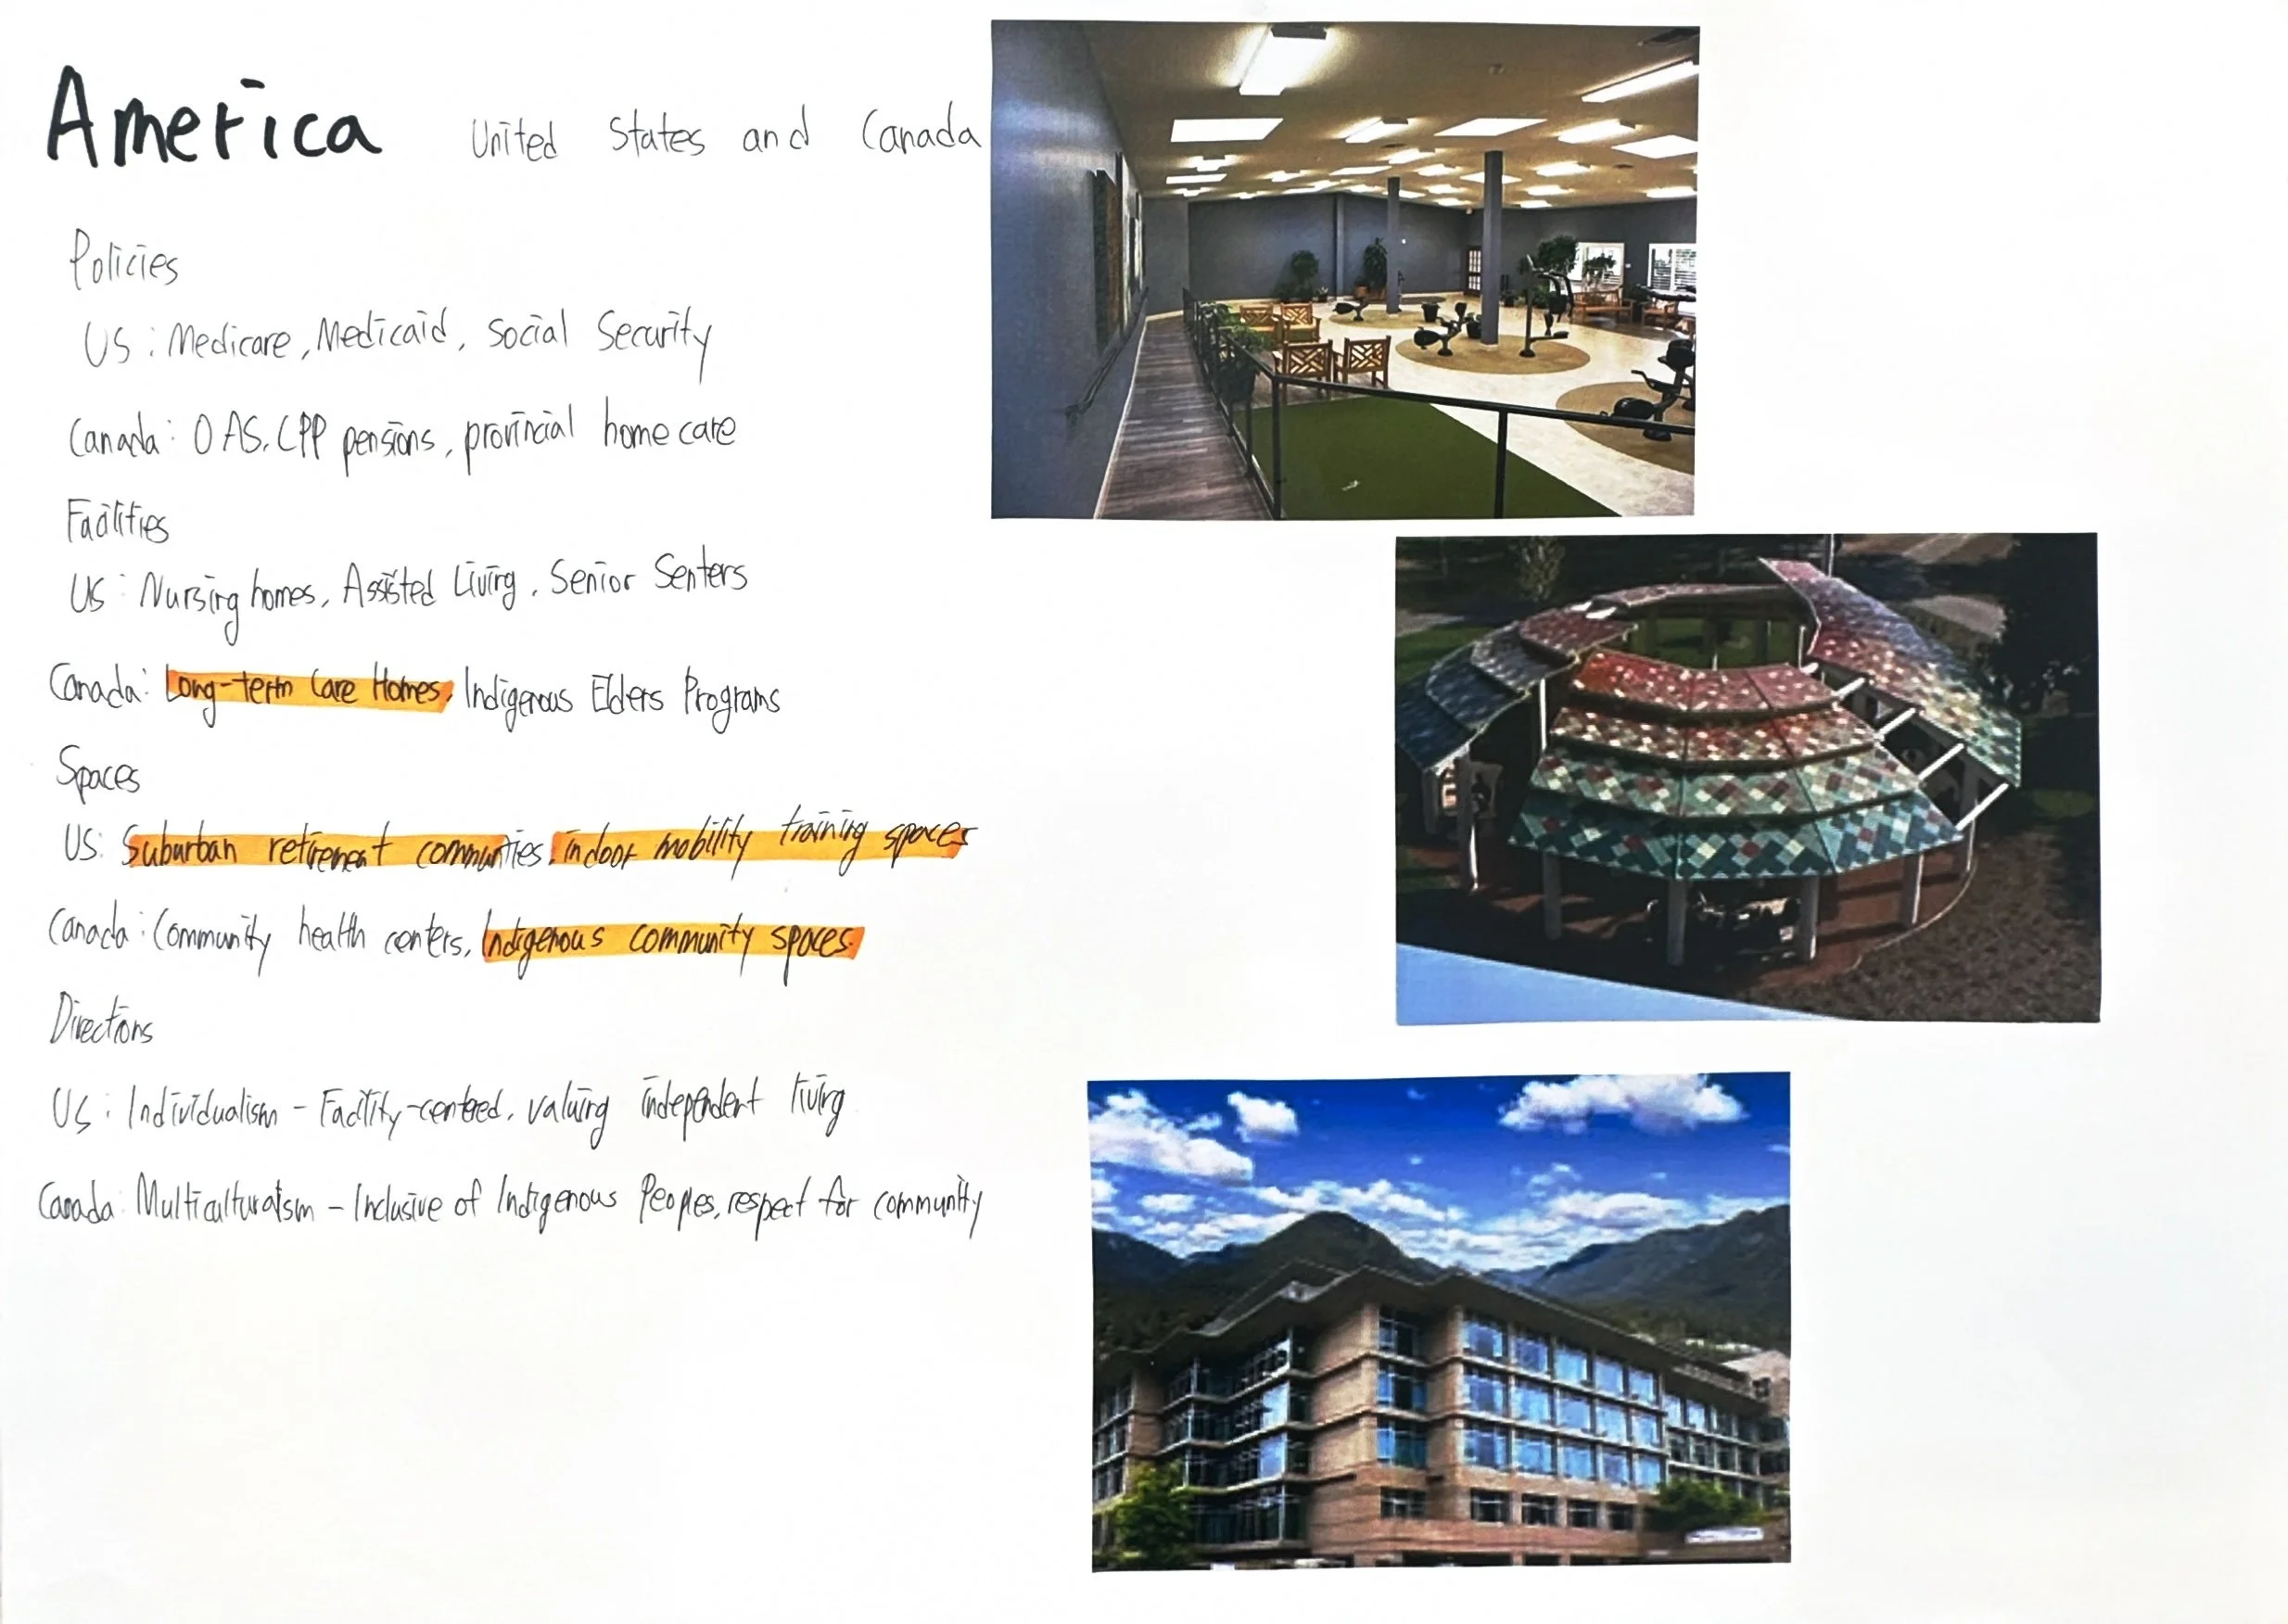 America United States and Canada
Policies
US : Medicare, Medicaid, Social Security
Canada: OAS, CPP pensions, provincial home care
Facilities
US : Nursing homes, Assisted Living, Senior Senters
Canada: Long-term Care Homes, Indigenous Elders Programs
Spaces
US: Suburban retirement communities, indoor mobility training spaces
Canada : Community health centers, Indigenous community spaces.
Directions
US : Individualism - Facility-centred, valuing independent living
Canada: Multiculturalism - Inclusive of Indigenous Peoples, respect for community